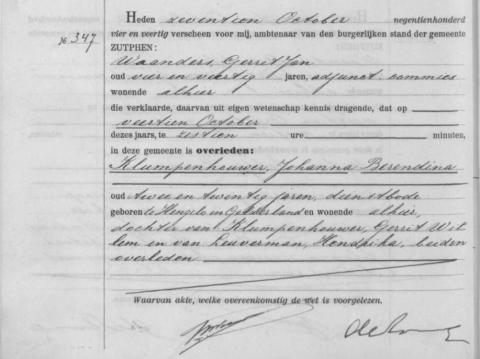 Heden zeventien October negentienhonderd
№ 347
vier en veertig verscheen voor mij, ambtenaar van den burgerlijken stand der gemeente
ZUTPHEN:
Waanders, Gerrit Jan
oud vier en veertig jaren, adjunct commies
wonende alhier
die verklaarde, daarvan uit eigen wetenschap kennis dragende, dat op
veertien October
dezes jaars, te zestien ure minuten,
in deze gemeente is overleden:
Klumpenhouwer, Johanna Berendina
oud twee en twintig jaren, dienstbode
geboren te Hengelo in Gelderland en wonende alhier,
dochter van Klumpenhouwer, Gerrit Wil
lem en van Leuverman, Hendrika, beiden
overleden.
Waarvan akte, welke overeenkomstig de wet is voorgelezen.